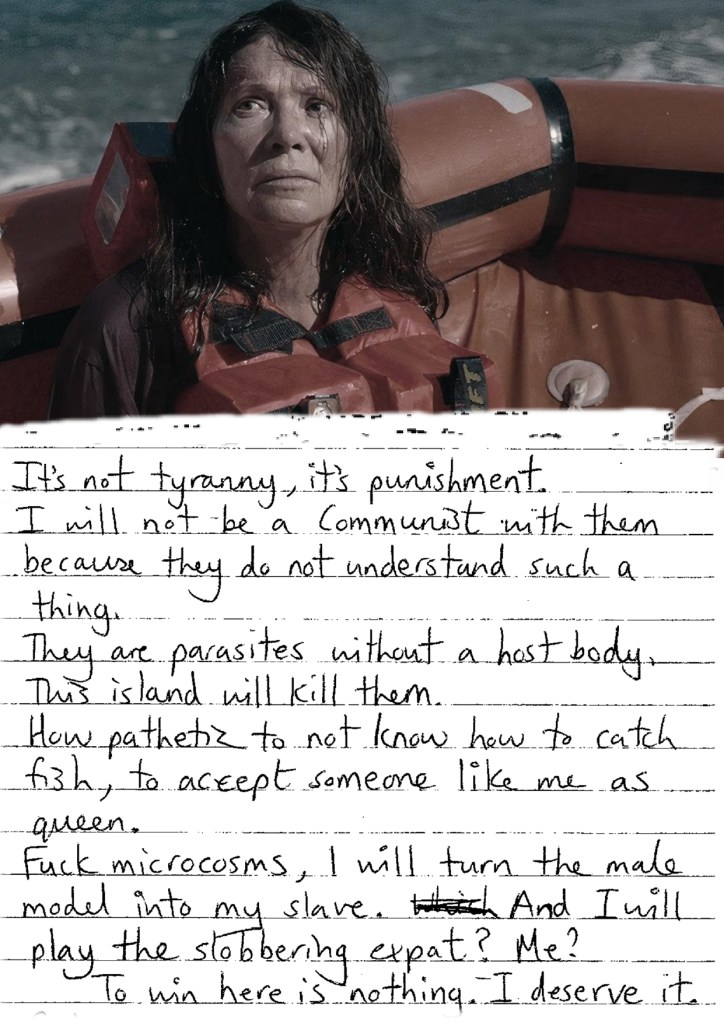 It's not tyranny, it's punishment.
I will not be a Communist with them
because they do not understand such a
thing.
They are parasites without a host body.
This island will kill them.
How pathetic to not know how to catch
fish, to accept someone like me as
queen.
Fuck microcosms, I will turn the male
model into my slave. And I will
play the slobbering expat? Me?
To win here is nothing. I deserve it.